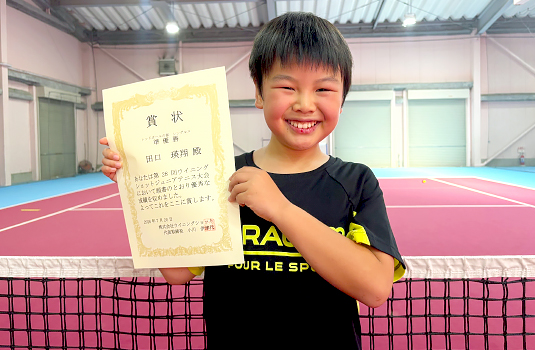 賞状
準優勝
田口 瑛翔 殿
あなたは第26回ウイニング
ショットジュニアテニス大会
において頭書のとおり優秀な
成績を収めました
よってこれをここに賞します
株式会社ウイニングショット
POUR LE SPO